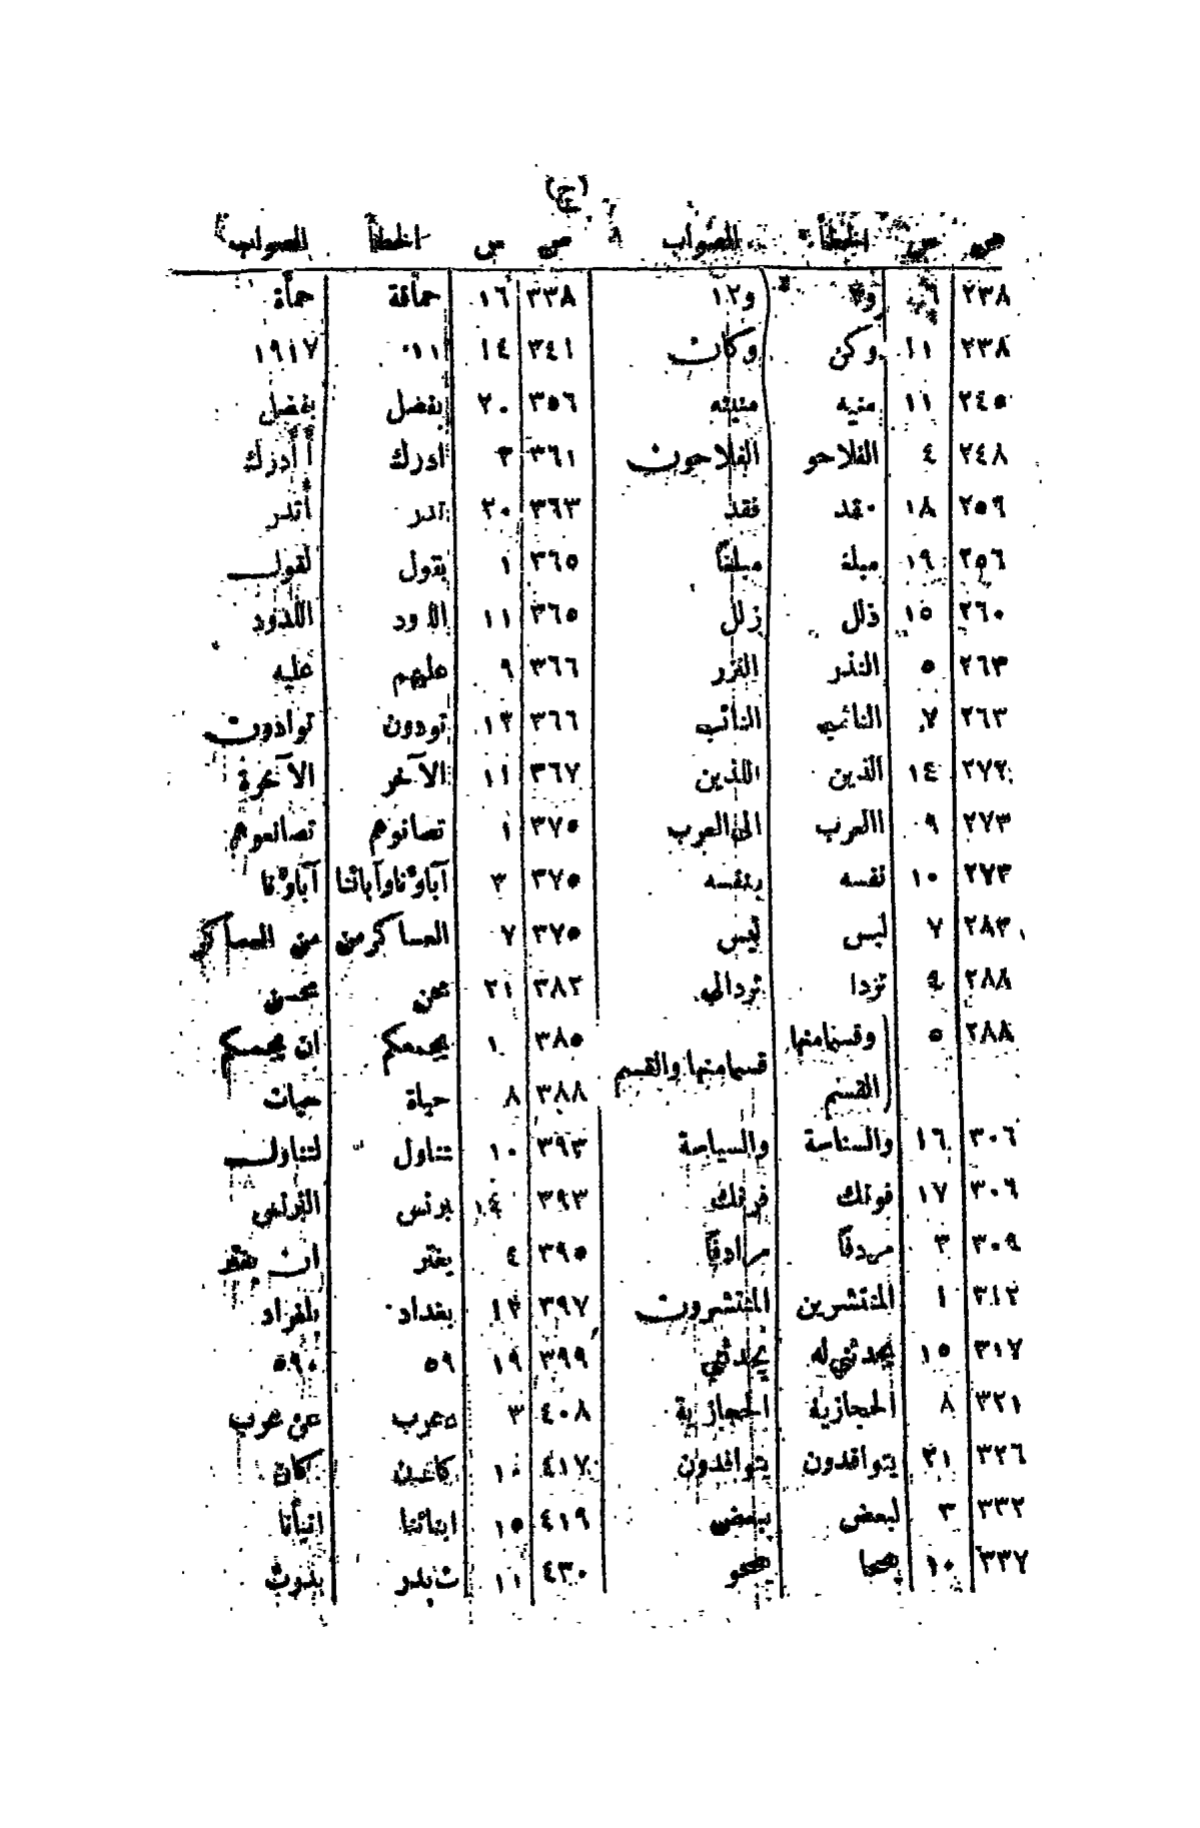 (ج)
ص س الخطأ الصواب ص س الخطأ الصواب
٢٣٨ ٦ و٣ و١٢ ٣٣٨ ١٦ حمأقة حمأة
٢٣٨ ١١ وكن وكان ٣٤١ ١٤ ١٩١٧
٢٤٥ ١١ منيه منيته ٣٥٦ ٢٠ يفضل بفضل
٢٤٨ ٤ الفلاحو الفلاحون ٣٦١ ٣ ادرك أأدرك
٢٥٦ ١٨ نقد فقد ٣٦٣ ٢٠ تدر أتدر
٢٥٦ ١٩ مبلة مبلغاً ٣٦٥ ١ يقول لقول
٢٦٠ ١٥ ذلل زلل ٣٦٥ ١١ الاود اللدود
٢٦٣ ٥ النذر النزر ٣٦٦ ٩ عليهم عليه
٢٦٣ ٧ النائب ٣٦٦ ١٣ تودون توادون
٢٧٢ ١٤ الذين اللذين ٣٦٧ ١١ الآخر الآخرة
٢٧٣ ٩ االعرب الى العرب ٣٧٥ ١ تصانوهم تصانعوهم
٢٧٣ ١٠ نفسه بنفسه ٣٧٥ ٣ آباؤناوآبائنا آباؤنا
٢٨٣ ٧ ليس ٣٧٥ ٧ العساكرمن من العساكر
٢٨٨ ٩ تزدا تزدالي ٣٨٢ ٢١ محن محسن
٢٨٨ ٥ وقسمامنها القسم قسمامنها والقسم ٣٨٥ ١ يجمعكم ان يجمعكم
٣٨٨ ٨ حياة حيات
٣٠٦ ١٦ والسناسة والسياسة ٣٩٣ ١٠ تتناول لتتناول
٣٠٦ ١٧ فونك فرنك ٣٩٣ ١٤ برنس البرنس
٣٠٩ ٣ مردفاً مرادفاً ٣٩٥ ٤ يفتر ان يفتر
٣١٢ ١ المنتشرين المنتشرون ٣٩٧ ١٣ بغداد
٣١٧ ١٥ يحدثني له يحدثني ٣٩٩ ١٩ ٥٩ ٥٩٠
٣٢١ ٨ الحجازية الحجازية ٤٠٨ ٣ عرب عن عرب
٣٢٦ ٢١ يتواقدون يتوافدون ٤١٧ ١٠ كان
٣٣٢ ٣ لبعض ببعض ٤١٩ ١٥ ابنائنا انبأنا
٣٣٧ ١٠ يصحو ٤٣٠ ١١